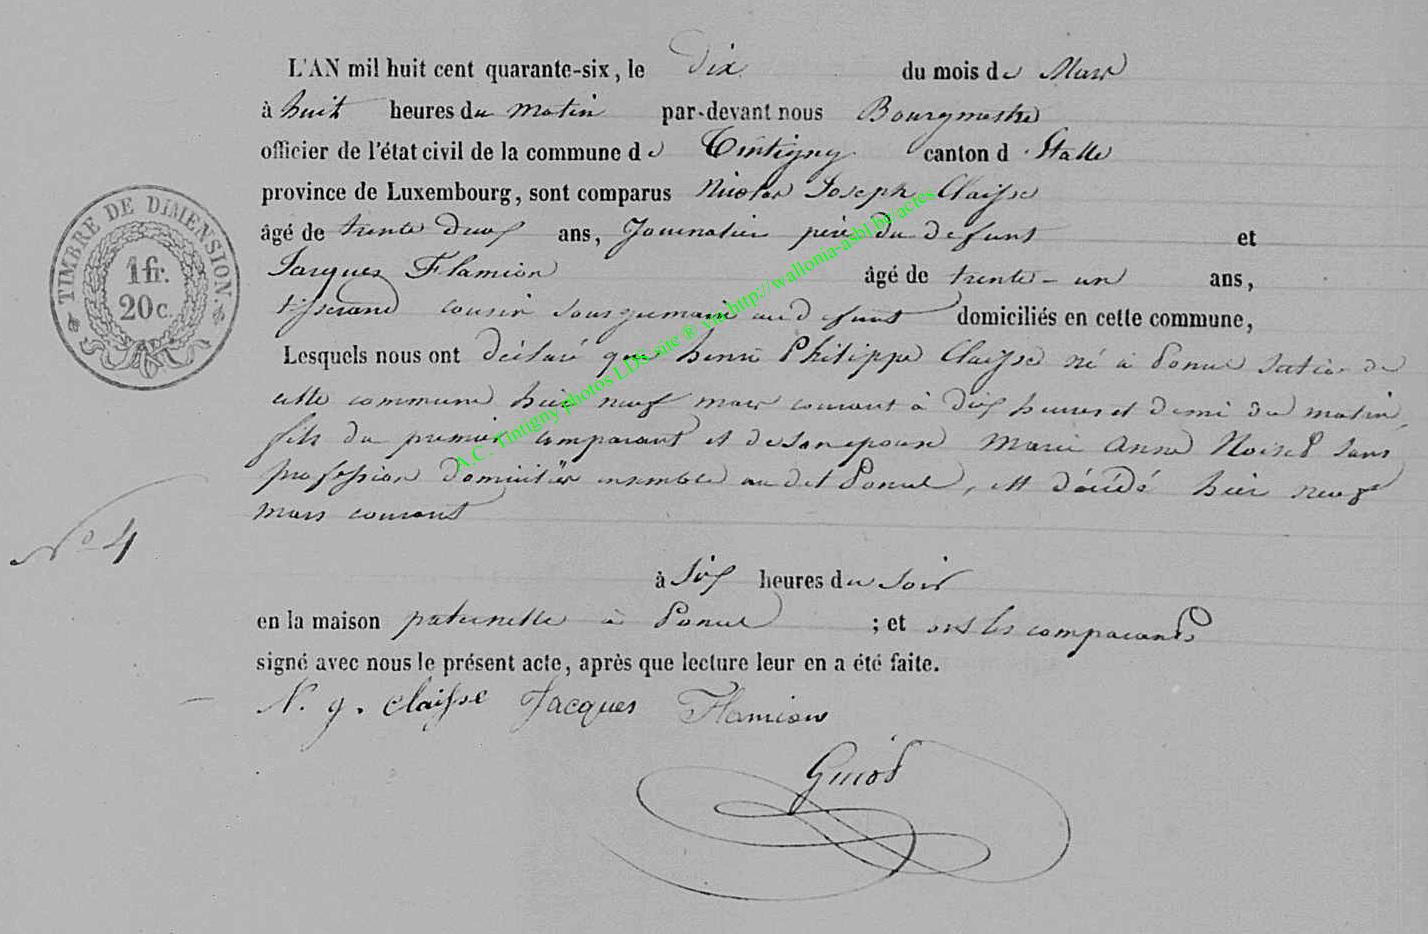 L'AN mil huit cent quarante-six, le Dix du mois de Mars
à huit heures du matin par-devant nous Bourgmestre
officier de l'état civil de la commune de Tintigny canton d'Etalle
province de Luxembourg, sont comparus Nicolas Joseph Claisse
âgé de trente deux ans, Journalier père du defunt et
Jacques Flamion âgé de trente-un ans,
tisserand cousin sousgermain au defunt domiciliés en cette commune,
Lesquels nous ont déclaré que henri Philippe Claisse né à Poncel section de
cette commune hier neuf mars courant à dix heures et demi du matin,
fils du premier comparant et de son epouse Marie Anne Noirel sans
profession domiciliés ensemble au dit Poncel, est décédé hier neuf
mars courant
N° 4
à six heures du soir
en la maison paternelle à Poncel ; et ont les comparants
signé avec nous le présent acte, après que lecture leur en a été faite.
N. j. claisse Jacques Flamion
Guiot
TIMBRE DE DIMENSION.
1 fr.
20 c.
A.C. Tintigny photos LDS site ® via http://wallonia-asbl.be/actes